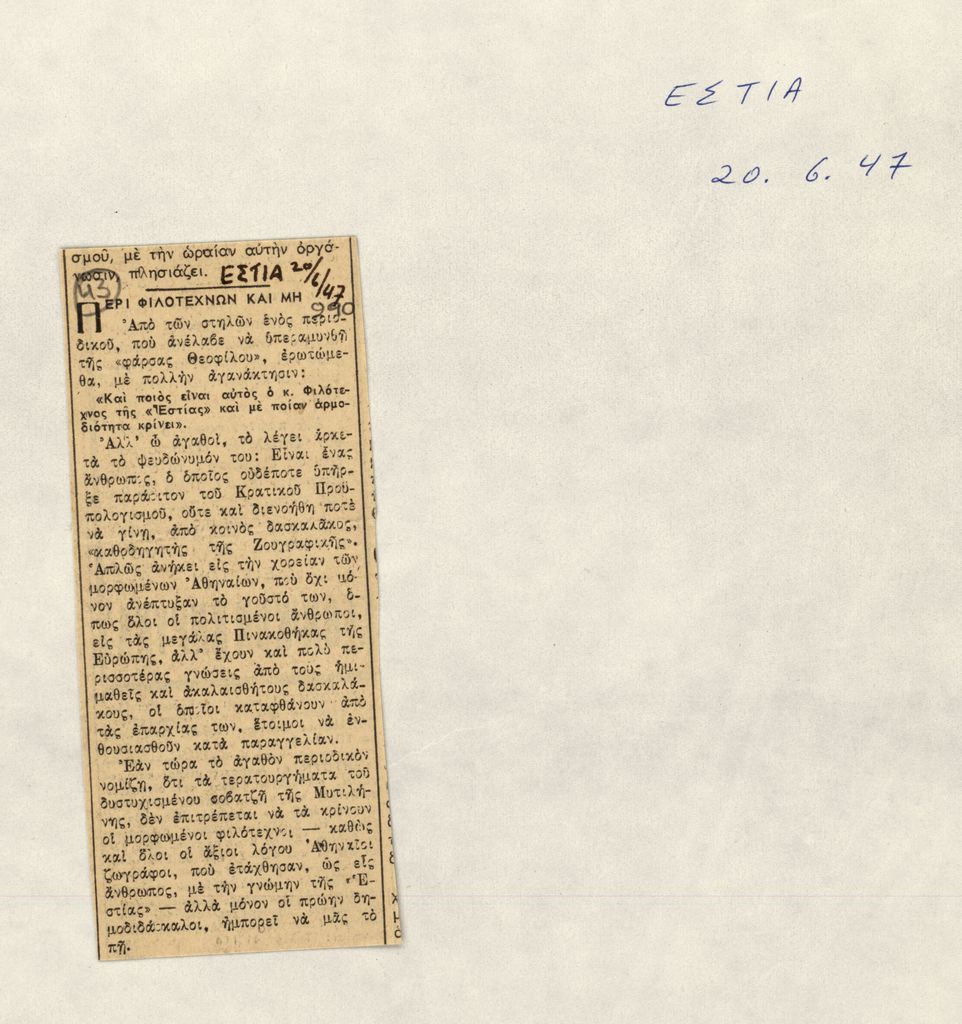 ΕΣΤΙΑ
20. 6. 47
σμοῦ, μὲ τὴν ὡραίαν αὐτὴν ὀργά-
νωσιν, πλησιάζει.
ΕΣΤΙΑ 20/6/47
43
990
ΠΕΡΙ ΦΙΛΟΤΕΧΝΩΝ ΚΑΙ ΜΗ
Ἀπὸ τῶν στηλῶν ἑνὸς περιο-
δικοῦ, ποὺ ἀνέλαβε νὰ ὑπεραμυνθῇ
τῆς «φάρσας Θεοφίλου», ἐρωτώμε-
θα, μὲ πολλὴν ἀγανάκτησιν:
«Καὶ ποιὸς εἶναι αὐτὸς ὁ κ. Φιλότε-
χνος τῆς «Ἑστίας» καὶ μὲ ποίαν ἁρμο-
διότητα κρίνει».
Ἀλλ' ὦ ἀγαθοί, τὸ λέγει ἀρκε-
τὰ τὸ ψευδώνυμόν του: Εἶναι ἕνας
ἄνθρωπος, ὁ ὁποῖος οὐδέποτε ὑπῆρ-
ξε παράσιτον τοῦ Κρατικοῦ Προϋ-
πολογισμοῦ, οὔτε καὶ διενοήθη ποτὲ
νὰ γίνῃ, ἀπὸ κοινὸς δασκαλάκος,
«καθοδηγητὴς τῆς Ζουγραφικῆς».
Ἁπλῶς ἀνήκει εἰς τὴν χορείαν τῶν
μορφωμένων Ἀθηναίων, ποὺ ὄχι μό-
νον ἀνέπτυξαν τὸ γοῦστό των, ὅ-
πως ὅλοι οἱ πολιτισμένοι ἄνθρωποι,
εἰς τὰς μεγάλας Πινακοθήκας τῆς
Εὐρώπης, ἀλλ' ἔχουν καὶ πολὺ πε-
ρισσοτέρας γνώσεις ἀπὸ τοὺς ἡμι-
μαθεῖς καὶ ἀκαλαισθήτους δασκαλά-
κους, οἱ ὁποῖοι καταφθάνουν ἀπὸ
τὰς ἐπαρχίας των, ἕτοιμοι νὰ ἐν-
θουσιασθοῦν κατὰ παραγγελίαν.
Ἐὰν τώρα τὸ ἀγαθὸν περιοδικὸν
νομίζῃ, ὅτι τὰ τερατουργήματα τοῦ
δυστυχισμένου σοβατζῆ τῆς Μυτιλή-
νης, δὲν ἐπιτρέπεται νὰ τὰ κρίνουν
οἱ μορφωμένοι φιλότεχνοι — καθὼς
καὶ ὅλοι οἱ ἄξιοι λόγου Ἀθηναῖοι
ζωγράφοι, ποὺ ἐτάχθησαν, ὡς εἷς
ἄνθρωπος, μὲ τὴν γνώμην τῆς «Ἑ-
στίας» — ἀλλὰ μόνον οἱ πρώην δη-
μοδιδάσκαλοι, ἠμπορεῖ νὰ μᾶς τὸ
πῇ.